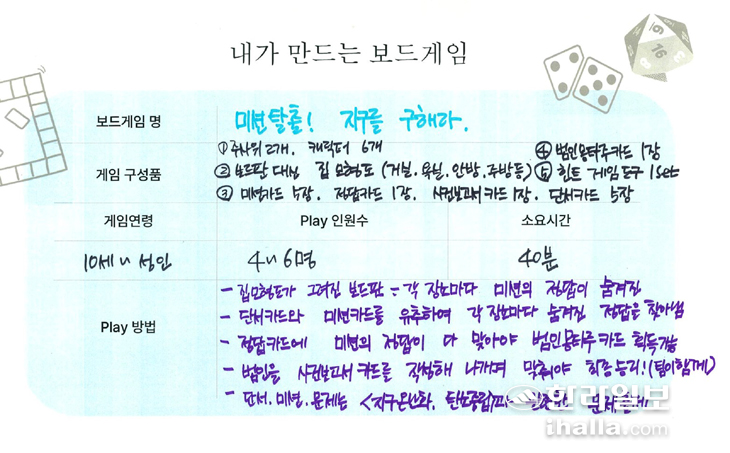 내가 만드는 보드게임
보드게임 명 미션탈출! 지구를 구해라.
게임 구성품
① 주사위 2개, 캐릭터 6개 ④ 범인몽타주카드 1장
② 보드판 대신 집 모형도 (거실, 욕실, 안방, 주방 등) ⑤ 힌트 게임도구 1set
③ 미션카드 5장, 정답카드 1장, 사건보고서카드 1장, 단서카드 5장
게임연령 Play 인원수 소요시간
10세~성인 4~6명 40분
Play 방법
- 집모형도가 그려진 보드판 - 각 장소마다 미션의 정답이 숨겨진
- 단서카드와 미션카드를 유추하여 각 장소마다 숨겨진 정답을 찾아냄
- 정답카드에 미션의 정답이 다 맞아야 범인몽타주 카드 획득가능
- 범인을 사건보고서 카드를 작성해 나가며 맞춰야 최종승리! (팀이함께)
- 단서, 미션, 문제는 <지구온난화, 탄소중립
한라일보
ihalla.com